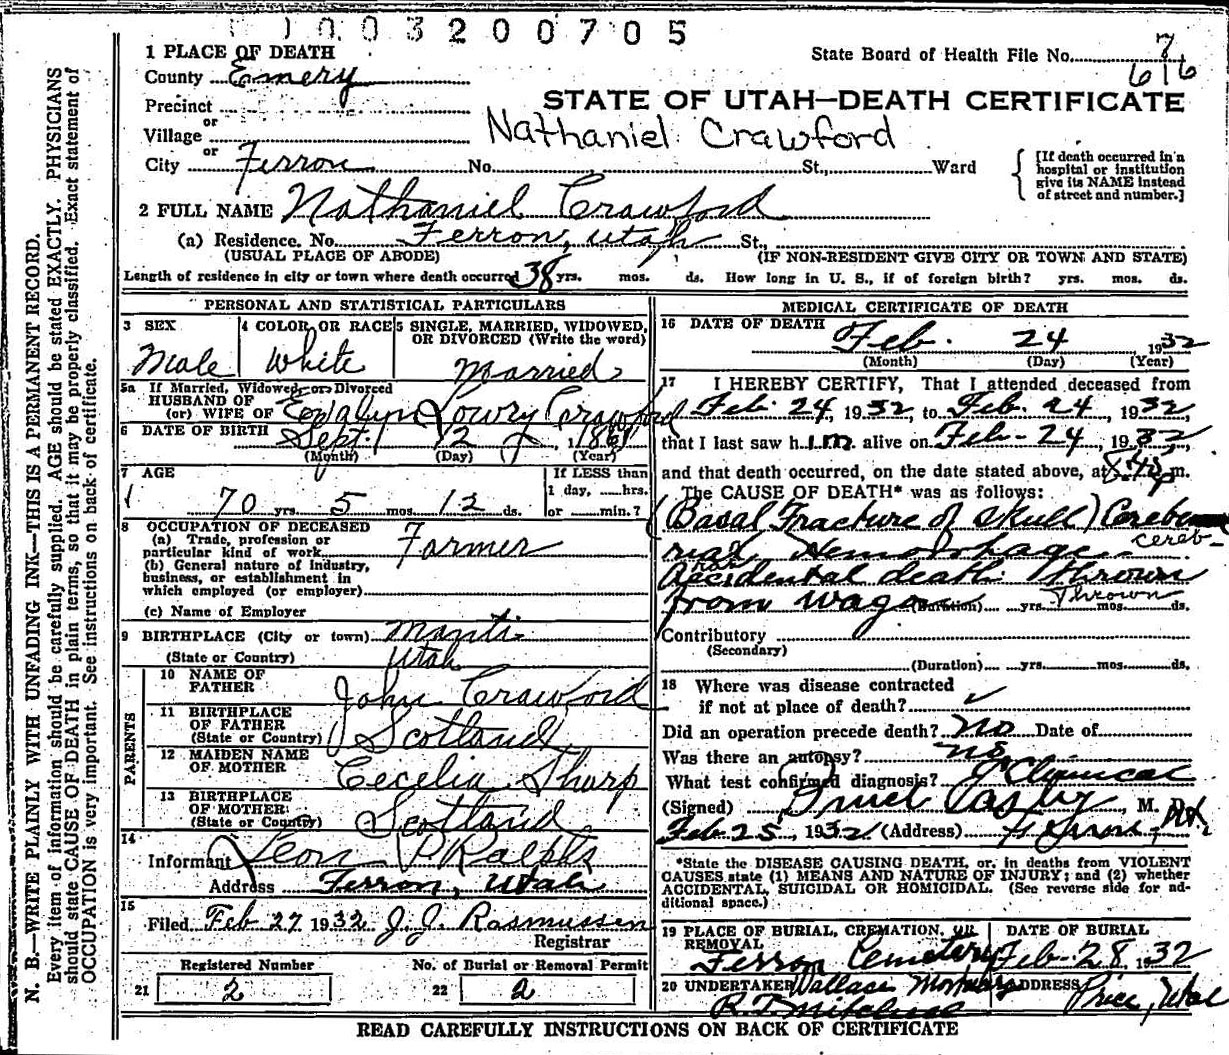 1003200705
1 PLACE OF DEATH
State Board of Health File No. 7
County Emery
616
STATE OF UTAH—DEATH CERTIFICATE
Precinct
or
Village
Nathaniel Crawford
or
City Ferron No. St., Ward
[If death occurred in a hospital or institution give its NAME instead of street and number.]
2 FULL NAME Nathaniel Crawford
(a) Residence. No. Ferron, Utah St.,
(USUAL PLACE OF ABODE) (IF NON-RESIDENT GIVE CITY OR TOWN AND STATE)
Length of residence in city or town where death occurred 38 yrs. mos. ds. How long in U. S., if of foreign birth? yrs. mos. ds.
PERSONAL AND STATISTICAL PARTICULARS
3 SEX 4 COLOR OR RACE 5 SINGLE, MARRIED, WIDOWED, OR DIVORCED (Write the word)
Male White Married
5a If Married, Widowed or Divorced
HUSBAND OF
(or) WIFE OF Evalyn Lowry Crawford
6 DATE OF BIRTH Sept. 12, 1861
(Month) (Day) (Year)
7 AGE If LESS than
1 day, hrs.
70 yrs. 5 mos. 12 ds. or min.?
8 OCCUPATION OF DECEASED
(a) Trade, profession or
particular kind of work Farmer
(b) General nature of industry,
business, or establishment in
which employed (or employer)
(c) Name of Employer
9 BIRTHPLACE (City or town) Manti
(State or Country) Utah
PARENTS
10 NAME OF
FATHER John Crawford
11 BIRTHPLACE
OF FATHER
(State or Country) Scotland
12 MAIDEN NAME
OF MOTHER Cecelia Sharp
13 BIRTHPLACE
OF MOTHER
(State or Country) Scotland
14
Informant Leon P Ralphs
Address Ferron, Utah
15
Filed Feb 27 1932 J. J. Rasmussen
Registrar
Registered Number No. of Burial or Removal Permit
21 2 22 2
MEDICAL CERTIFICATE OF DEATH
16 DATE OF DEATH
Feb. 24 1932
(Month) (Day) (Year)
17 I HEREBY CERTIFY, That I attended deceased from
Feb. 24, 1932, to Feb. 24, 1932,
that I last saw him alive on Feb-24, 1932
and that death occurred, on the date stated above, at p m.
The CAUSE OF DEATH* was as follows:
(Basal Fracture of Skull) Cereb
Hemorrhage cereb-
Accidental death. Thrown
from wagon (Duration) yrs. Thrown mos. ds.
Contributory
(Secondary)
(Duration) yrs. mos. ds.
18 Where was disease contracted
if not at place of death?
Did an operation precede death? No Date of
Was there an autopsy? no
What test confirmed diagnosis? Clynical
(Signed) M. D.
Feb. 25, 1932 (Address) Ferron,
*State the DISEASE CAUSING DEATH, or, in deaths from VIOLENT
CAUSES state (1) MEANS AND NATURE OF INJURY; and (2) whether
ACCIDENTAL, SUICIDAL OR HOMICIDAL. (See reverse side for ad-
ditional space.)
19 PLACE OF BURIAL, CREMATION, OR DATE OF BURIAL
REMOVAL
Ferron Cemetery Feb. 28, 1932
20 UNDERTAKER Wallace Mortuary ADDRESS Price, Utah
R. T. Mitchell
READ CAREFULLY INSTRUCTIONS ON BACK OF CERTIFICATE
N. B.—WRITE PLAINLY WITH UNFADING INK—THIS IS A PERMANENT RECORD.
Every item of information should be carefully supplied. AGE should be stated EXACTLY. PHYSICIANS
should state CAUSE OF DEATH in plain terms, so that it may be properly classified. Exact statement of
OCCUPATION is very important. See instructions on back of certificate.